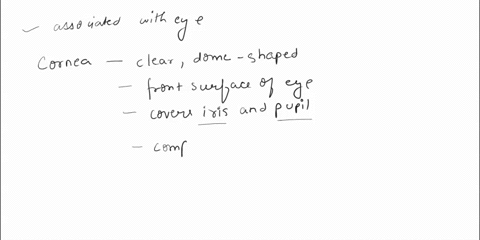 ✓ associated with eye
Cornea – clear, dome-shaped
– front surface of eye
– covers iris and pupil
– comp